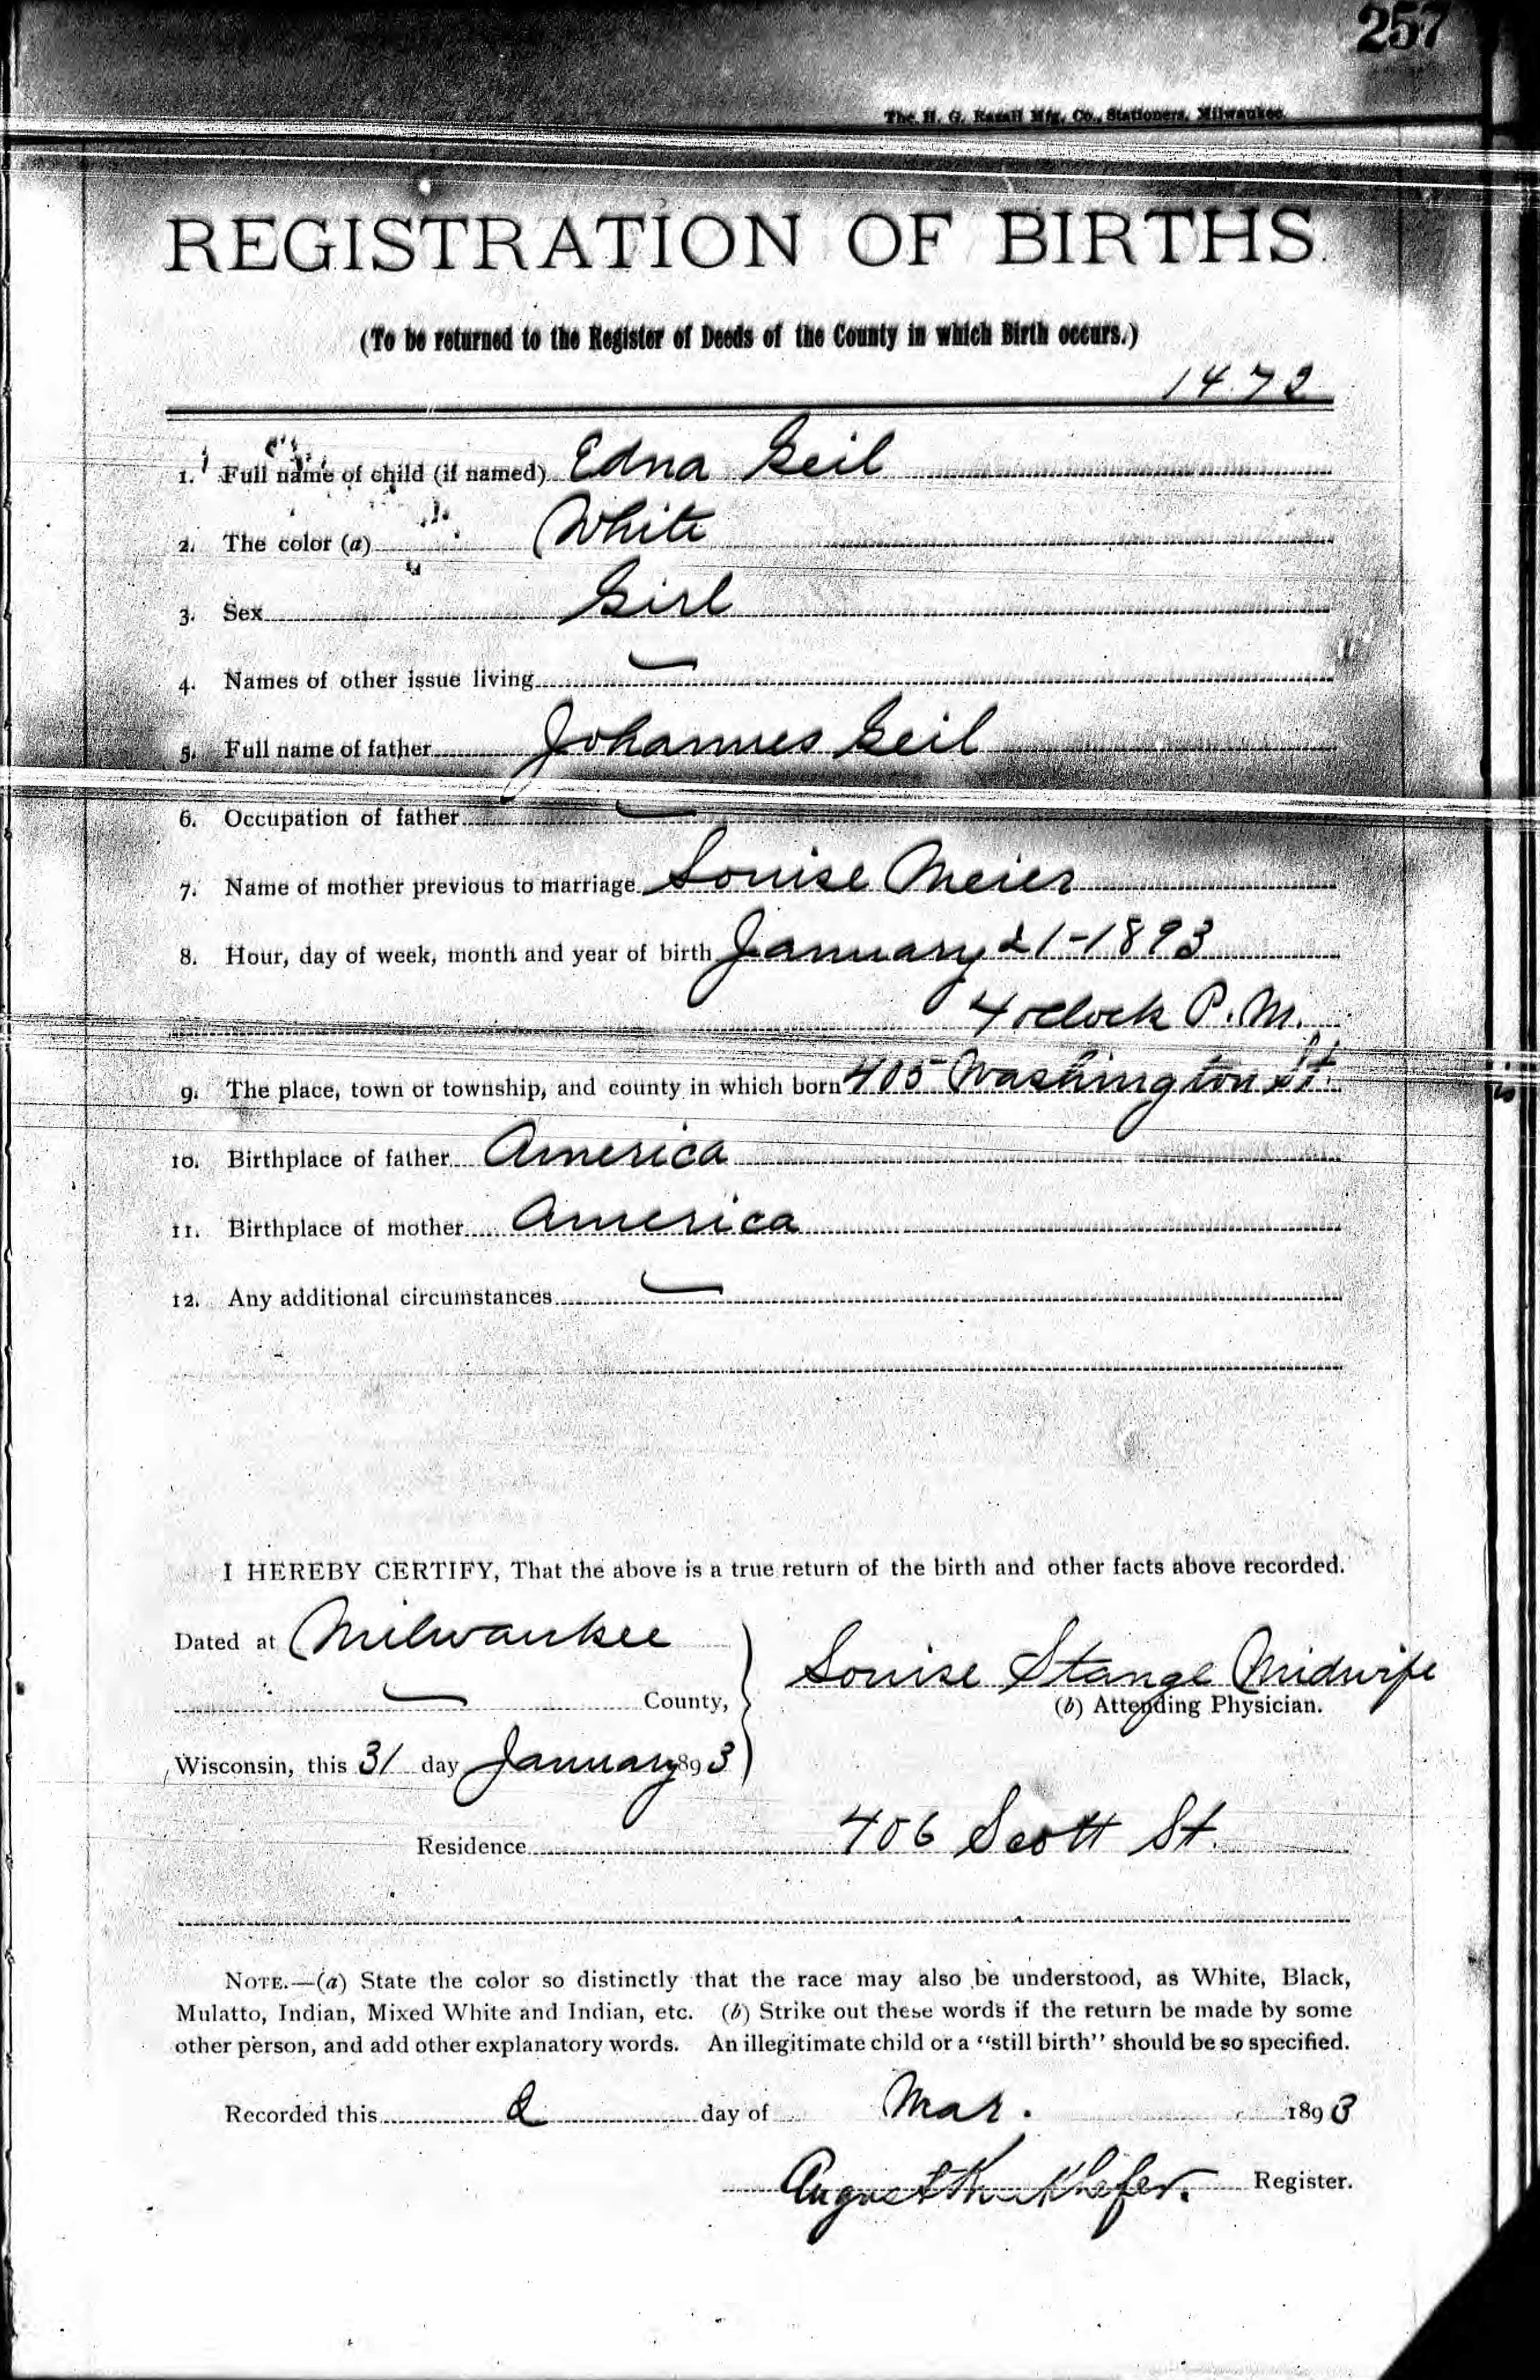 257
The H. G. Razall Mfg. Co., Stationers, Milwaukee.
REGISTRATION OF BIRTHS.
(To be returned to the Register of Deeds of the County in which Birth occurs.)
1472
1. Full name of child (if named) Edna Geil
2. The color (a) White
3. Sex Girl
4. Names of other issue living
5. Full name of father Johannes Geil
6. Occupation of father
7. Name of mother previous to marriage Louise Meier
8. Hour, day of week, month and year of birth January 21-1893
4 oclock P.M.
9. The place, town or township, and county in which born 405 Washington St.
10. Birthplace of father America
11. Birthplace of mother America
12. Any additional circumstances
I HEREBY CERTIFY, That the above is a true return of the birth and other facts above recorded.
Dated at Milwaukee
Louise Stange Midwife
County,
(b) Attending Physician.
Wisconsin, this 31 day January 1893
Residence 406 Scott St.
NOTE.—(a) State the color so distinctly that the race may also be understood, as White, Black,
Mulatto, Indian, Mixed White and Indian, etc. (b) Strike out these words if the return be made by some
other person, and add other explanatory words. An illegitimate child or a "still birth" should be so specified.
Recorded this 2 day of Mar. 1893
August Register.